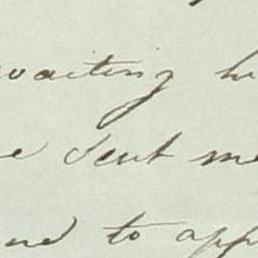 waiting h
e sent me
nd to app